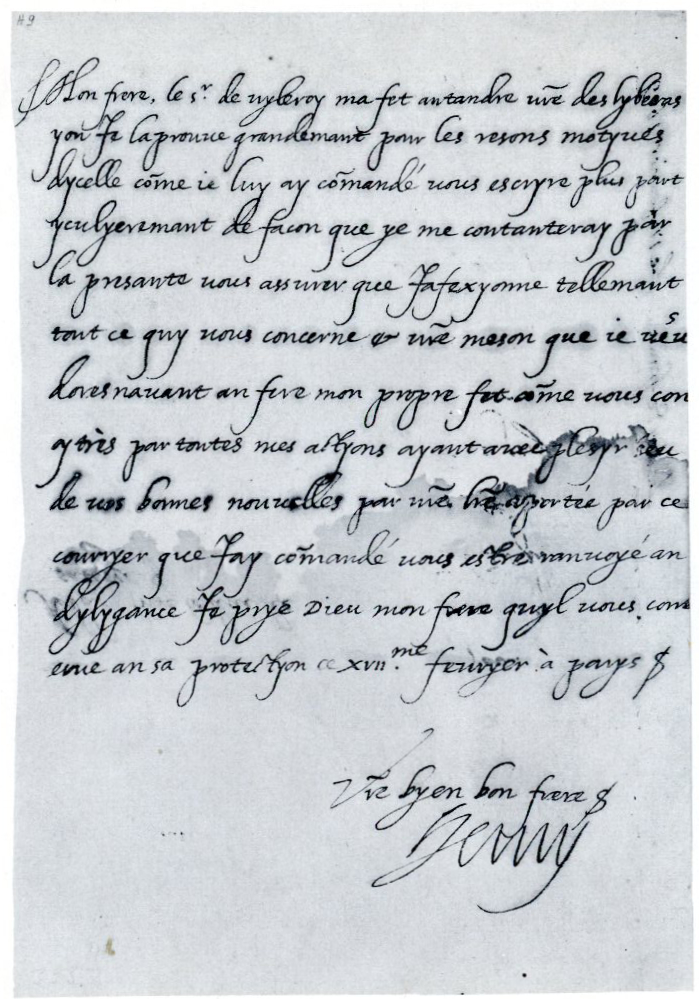 49
Mon frere, le sr de vyleroy ma fet antandre vre des lyberas
yon Je laprouve grandemant pour les resons motyves
dycelle come ie luy ay comandé vous escryre plus part
yculyeremant de facon que ye me contanteray par
la presante vous assurer que Jafexyonne tellemant
tout ce quy vous concerne & vre meson que ie veus
doresnavant an fere mon propre fet come vous con
oytrès par toutes mes actyons ayant avec plesyr seu
de vos bonnes nouvelles par vre lre aportée par ce
couryer que Jay comandé vous estre ranvoyé an
dylygance Je prye Dieu mon frere quyl vous cons
erve an sa protectyon ce xvii.me fevryer à parys $
Vre byen bon frere $
Henry